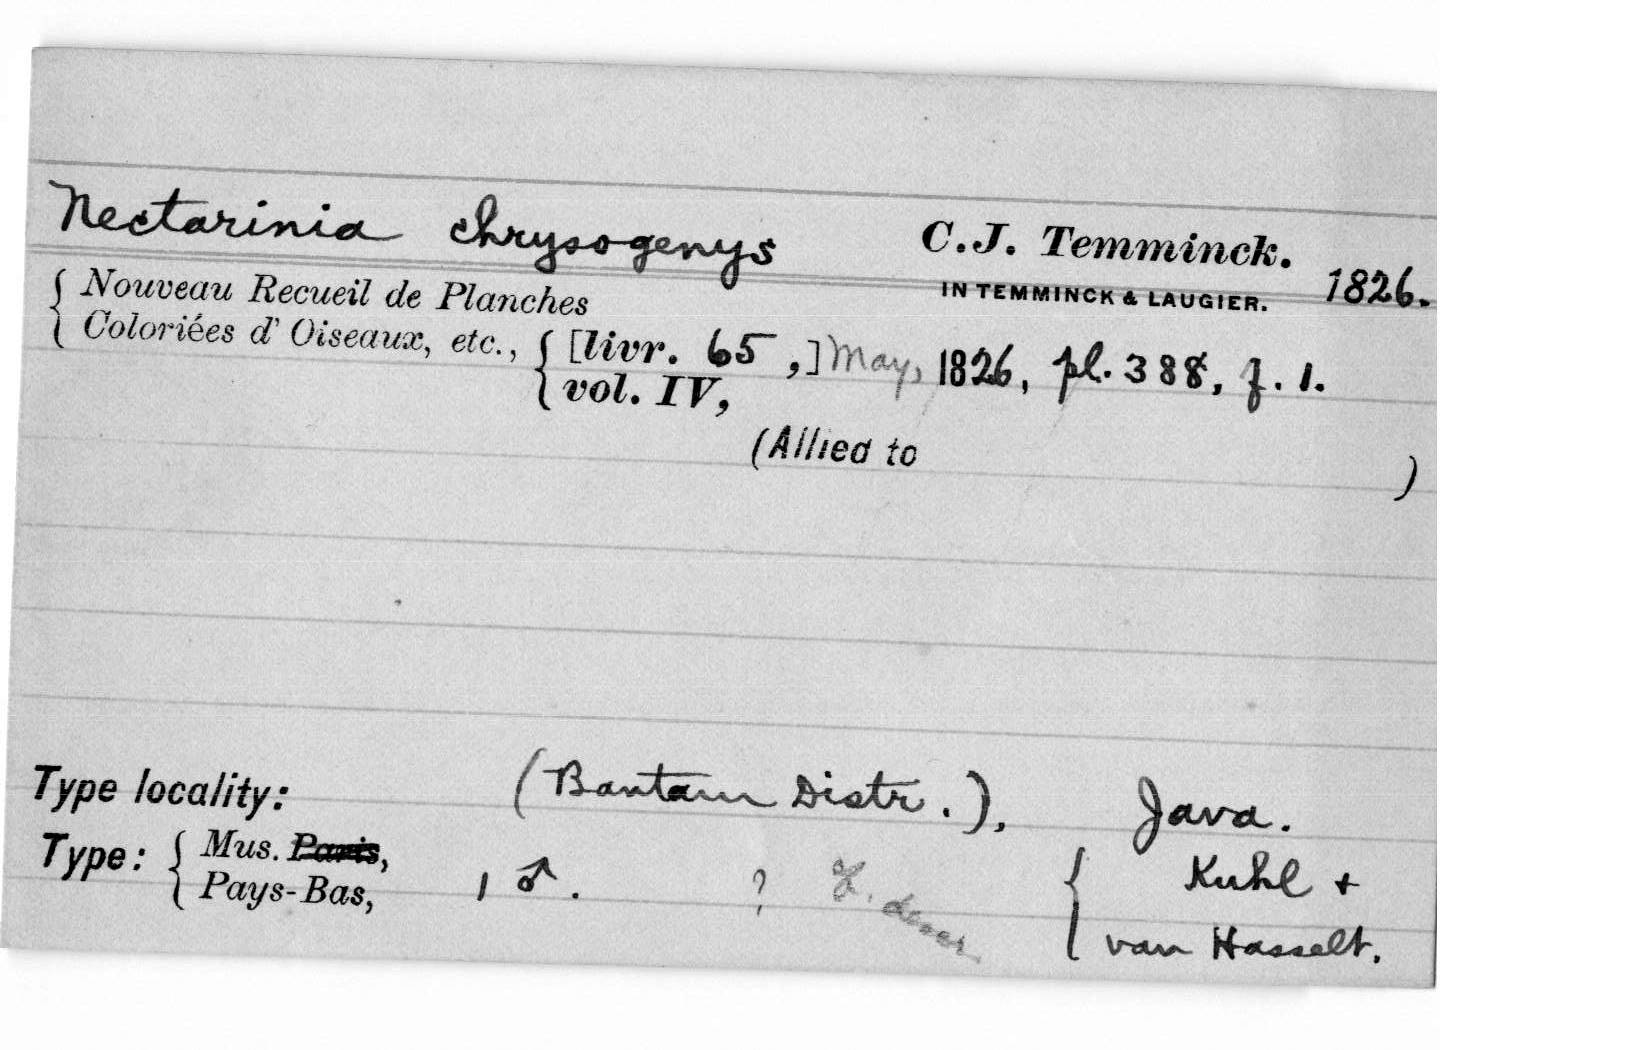 Nectarinia chrysogenys C.J. Temminck.
IN TEMMINCK & LAUGIER. 1826.
{ Nouveau Recueil de Planches
{ Coloriées d' Oiseaux, etc.,
{ [livr. 65 ,] May, 1826, pl. 388, f. 1.
{ vol. IV,
(Allied to )
Type locality: (Bantam Distr.), Java.
Type: { Mus. Paris,
{ Pays-Bas, 1 ♂. ? { Kuhl +
van Hasselt.